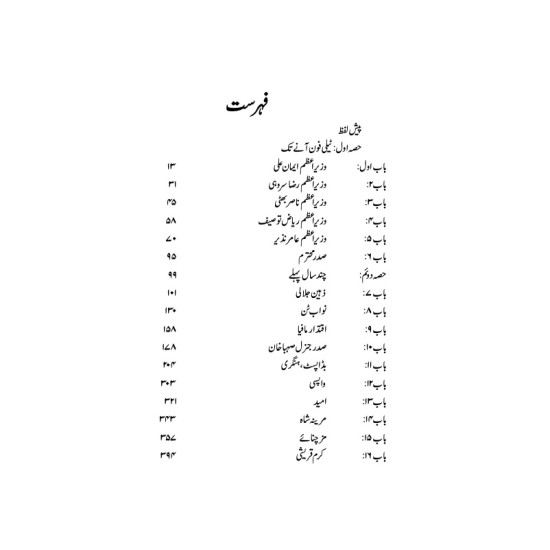 فہرست
پیش لفظ
حصہ اول: ٹیلی فون آنے تک
باب اول: وزیراعظم ایمان علی ۱۳
باب۲: وزیراعظم رضا سروہی ۳۱
باب۳: وزیراعظم ناصر بھٹی ۴۵
باب۴: وزیراعظم ریاض توصیف ۵۸
باب ۵: وزیراعظم عامر نذیر ۷۰
باب ۶: صدر محترم ۹۵
حصہ دوئم: چند سال پہلے ۹۹
باب ۷: ذہین جلالی ۱۰۱
باب ۸: نواب ٹن ۱۳۰
باب ۹: اقتدار مافیا ۱۵۸
باب ۱۰: صدر جنرل صہبا خان ۱۷۸
باب ۱۱: بڈاپسٹ، ہنگری ۲۰۴
باب ۱۲: واپسی ۳۰۳
باب ۱۳: امید ۳۲۱
باب ۱۴: مرینہ شاہ ۳۴۳
باب ۱۵: مزچنائے ۳۵۷
باب ۱۶: کرم قریشی ۳۹۴